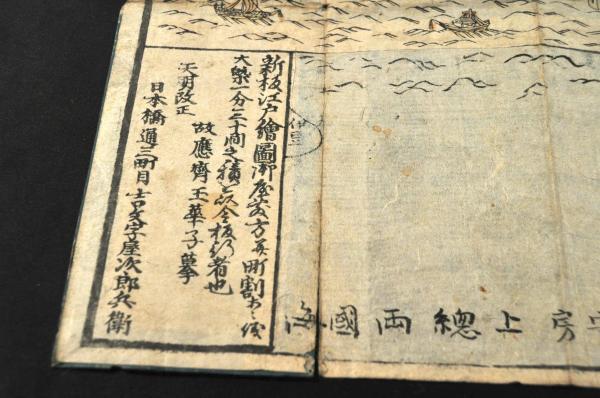 新板江戸繪圖御屋敷方并町割あ〻緩
大築一分三十間之積を以令板行者也
故應齋玉華子摹
天明改正
日本橋通三町目 吉文字屋次郎兵衛
伊豆
安房上總両國海